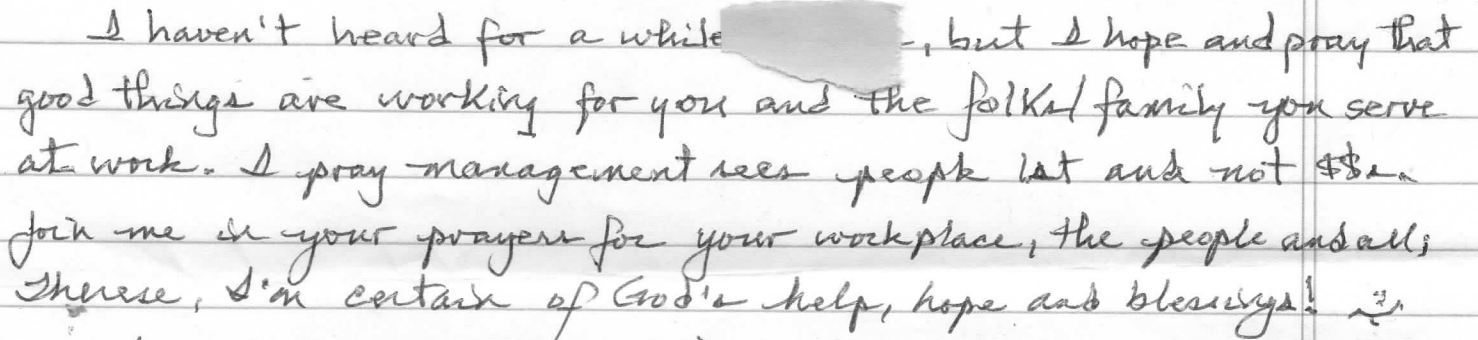 I haven't heard for a while -, but I hope and pray that
good things are working for you and the folks/family you serve
at work. I pray management sees people 1st and not $$s.
Join me in your prayers for your workplace, the people and all;
Therese, I'm certain of God's help, hope and blessings!